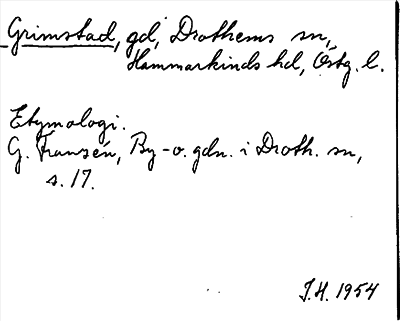 Grimstad, gd, Drothems sn,
Hammarkinds hd, Östg. l.
Etymologi.
G. Franzén, By- o. gdn. i Droth. sn,
s. 17.
J.H. 1954